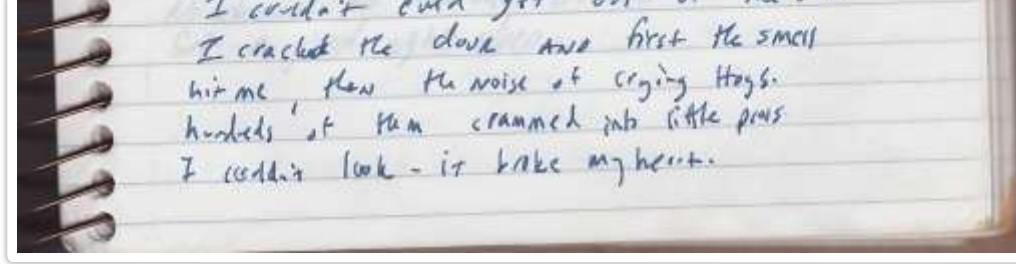 I couldn't even get out of the
I cracked the doue AND first the smell
hit me, then the noise of crying Hogs.
hundreds of them crammed into little pens
I couldn't look - it broke my heart.